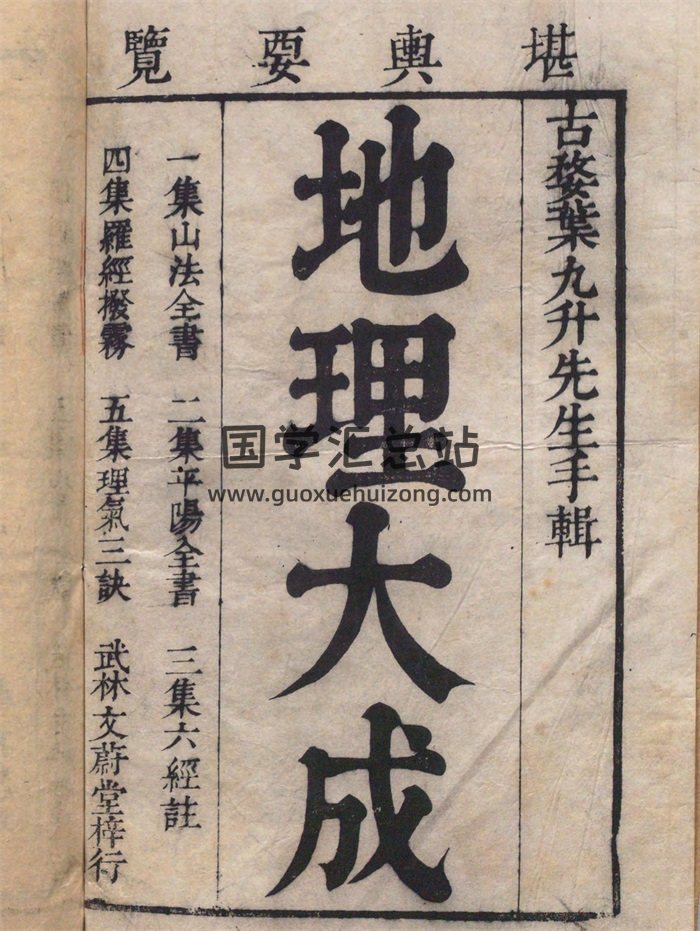 堪輿要覽
古婺葉九升先生手輯
地理大成
一集山法全書 二集平陽全書 三集六經註
四集羅經撥霧 五集理氣三訣 武林文蔚堂梓行
国学汇总站
www.guoxuehuizong.com